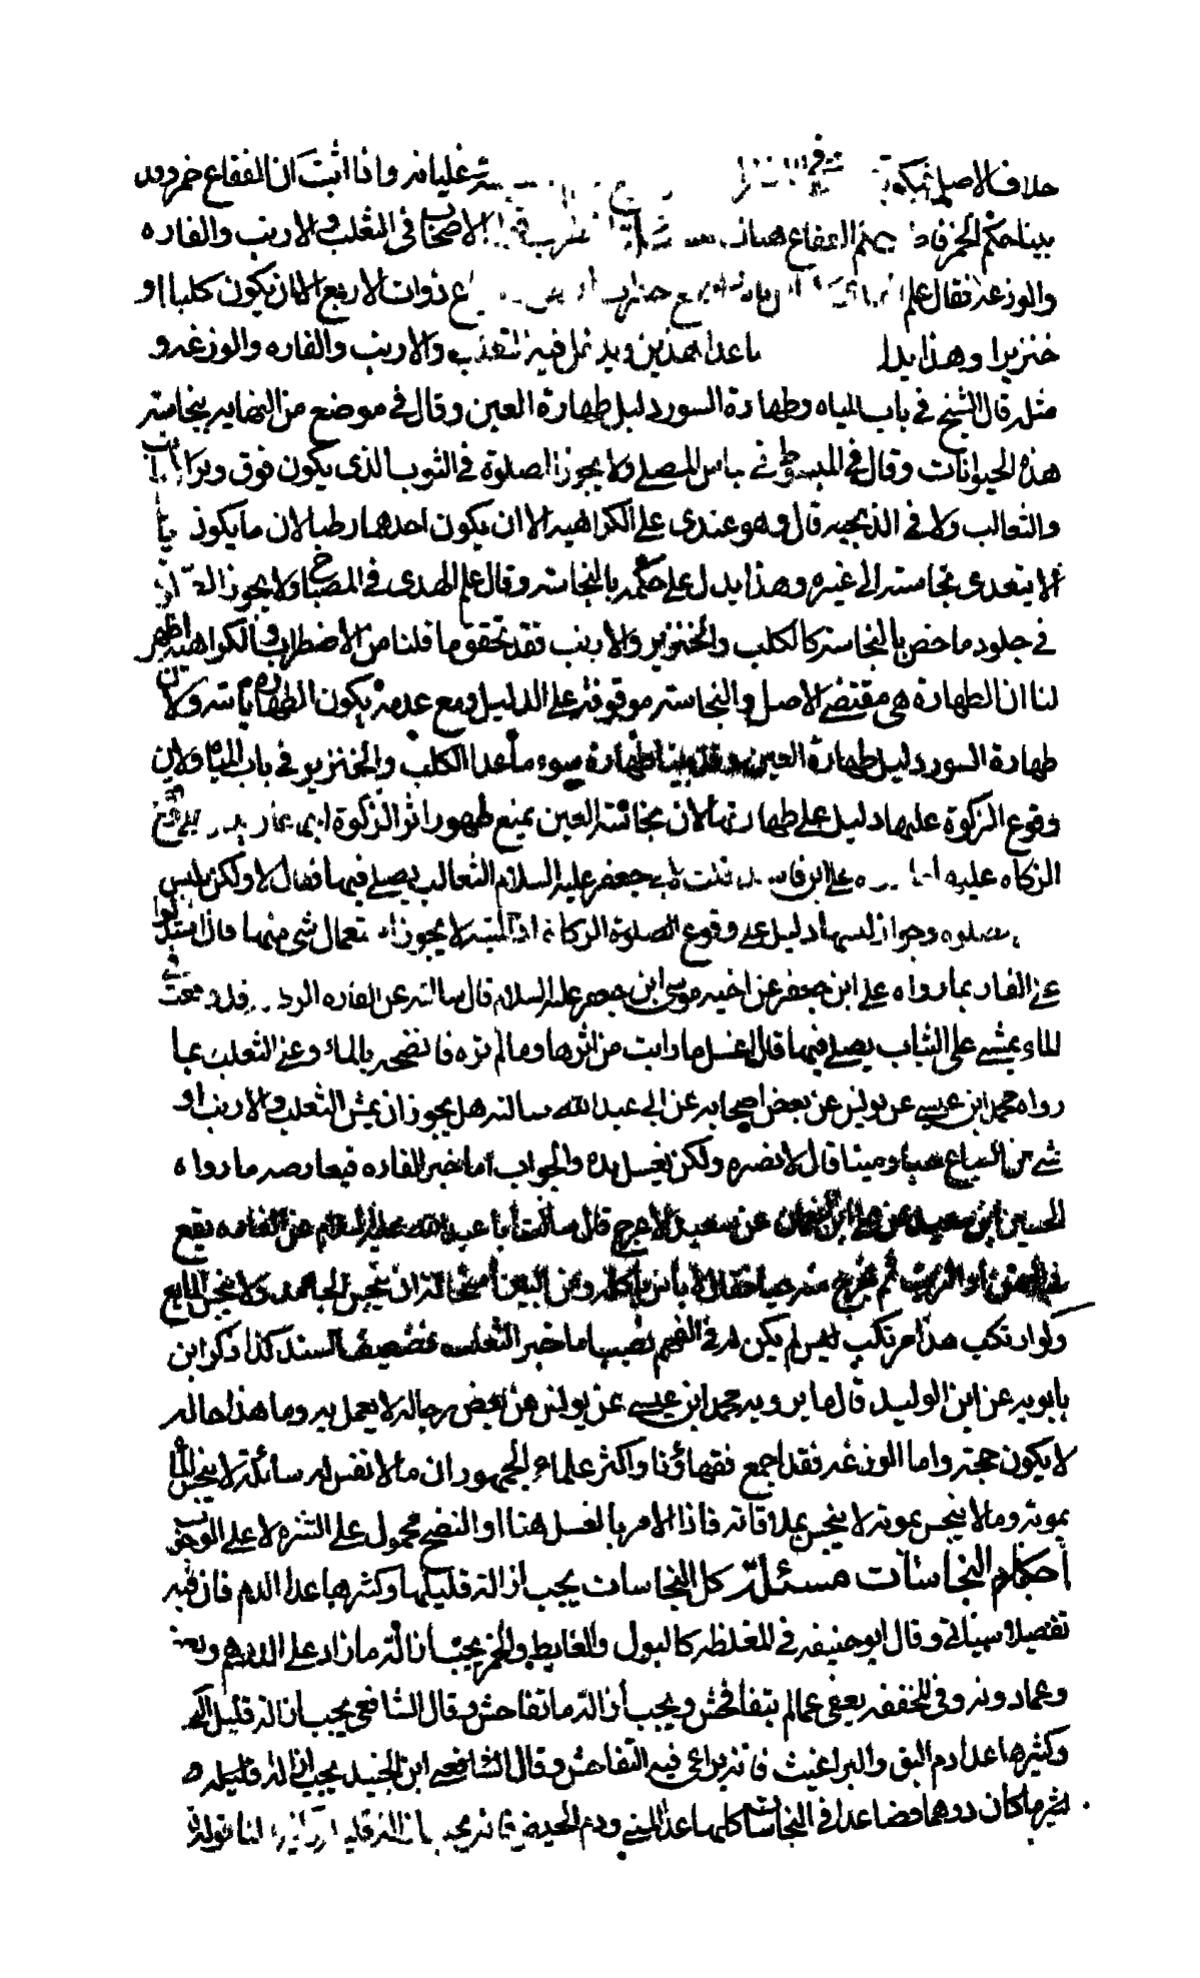 خلاف الاصل غليانه واذا ثبت ان الفقاع خمر وقد
بينا حكم الخمر الفقاع الاصحاب في الثعلب والارنب والفاره
والوزغه فقال علم ذوات الاربع الا ان يكون كلبا او
خنزيرا وهذا يدل ما عدا هذين ويدخل فيه الثعلب والارنب والفاره والوزغه و
مثله قال الشيخ في باب المياه وطهارة السور دليل طهارة العين وقال في موضع من النهايه بنجاسته
هذه الحيوانات وقال في المبسوط في باس المصلي ولا يجوز الصلوة في الثوب الذي يكون فوق وبر الارانب
والثعالب ولا في الذي تحته قال وهو عندي على الكراهيه الا ان يكون احدهما رطبا لان ما يكون يابسا
لا يتعدى نجاسته الى غيره وهذا يدل على حكمه بالنجاسته وقال علم الهدى في المصباح ولا يجوز الصلوة
في جلود ما خص بالنجاسته كالكلب والخنزير والارنب فقد تحقق ما قلنا من الاضطراب والكراهيه اظهر
لنا ان الطهارة هي مقتضى الاصل والنجاسته موقوفة على الدليل ومع عدمه يكون الطهاره ثابته ولان
طهارة السور دليل طهارة العين وقد بينا طهارة سوء ما عدا الكلب والخنزير في باب المياه ولان
وقوع الزكوة عليها دليل على طهارتها لان نجاسته العين يمنع ظهور اثر الزكوة
الزكاه عليه على ابن قلت لابي جعفر عليه السلام الثعالب يصلي فيها فقال لا ولكن يلبس
بعد الصلوه وجواز لبسها دليل على وقوع الزكاة اذ الميته لا يجوز استعمال شى منها قال استدلوا
على الفار بما رواه على ابن جعفر عن اخيه موسى ابن جعفر عليه السلام قال سالته عن الفاره الرطبه قد وقعت في
الماء يمشي على الثياب يصلي فيها قال اغسل ما رايت من اثرها وما لم تره فانضحه بالماء وعلى الثعلب بما
رواه محمد ابن عيسى عن يونس عن بعض اصحابه عن ابي عبد الله سالته هل يجوز ان يمس الثعلب والارنب او
شي من السباع حيا وميتا قال لا يضره ولكن يغسل يده والجواب اما خبر الفاره فيعارضه ما رواه
الحسين ابن سعيد عن علي ابن النعمان عن سعيد الاعرج قال سالت ابا عبد الله عليه السلام عن الفاره يقع
في السمن او الزيت ثم يخرج منه حيا فقال لا باس باكله ومن البين استحالة ان ينجس الجامد ولا ينجس المايع
ولو ارتكب هذا مرتكب لم يكن له في الفهم نصيب اما خبر الثعلب فضعيف السند كذا ذكر ابن
بابويه عن ابن الوليد قال ما يرويه محمد ابن عيسى عن يونس عن بعض رجاله لا يعمل به وما هذا حاله
لا يكون حجته واما الوزغه فقد اجمع فقهاؤنا واكثر علماء الجمهور ان ما لا نفس له سائلة لا ينجس الماء
بموته وما لا ينجس بموته لا ينجس بملاقاته فاذا الامر بالغسل هنا او النضح محمول على التنزه لا على الوجوب
احكام النجاسات مسئلة كل النجاسات يجب ازالة قليلها وكثيرها عدا الدم فان فيه
تفصيلا سيأتي وقال ابو حنيفه في المغلظه كالبول والغايط والخمر يجب ازالة ما زاد على الدرهم
وعما دونه وفي المخففه يعفى عما لم يتفاحش ويجب ازالة ما تفاحش وقال الشافعي يجب ازالة قليل
وكثيرها عدا دم البق والبراغيث فانه يراعي فيه التفاحش وقال ابن الجنيد يجب ازالة قليله
ما كان درهما فصاعدا في النجاسات كلها عدا المني ودم الحيض فانه يجب ازالة لنا قوله